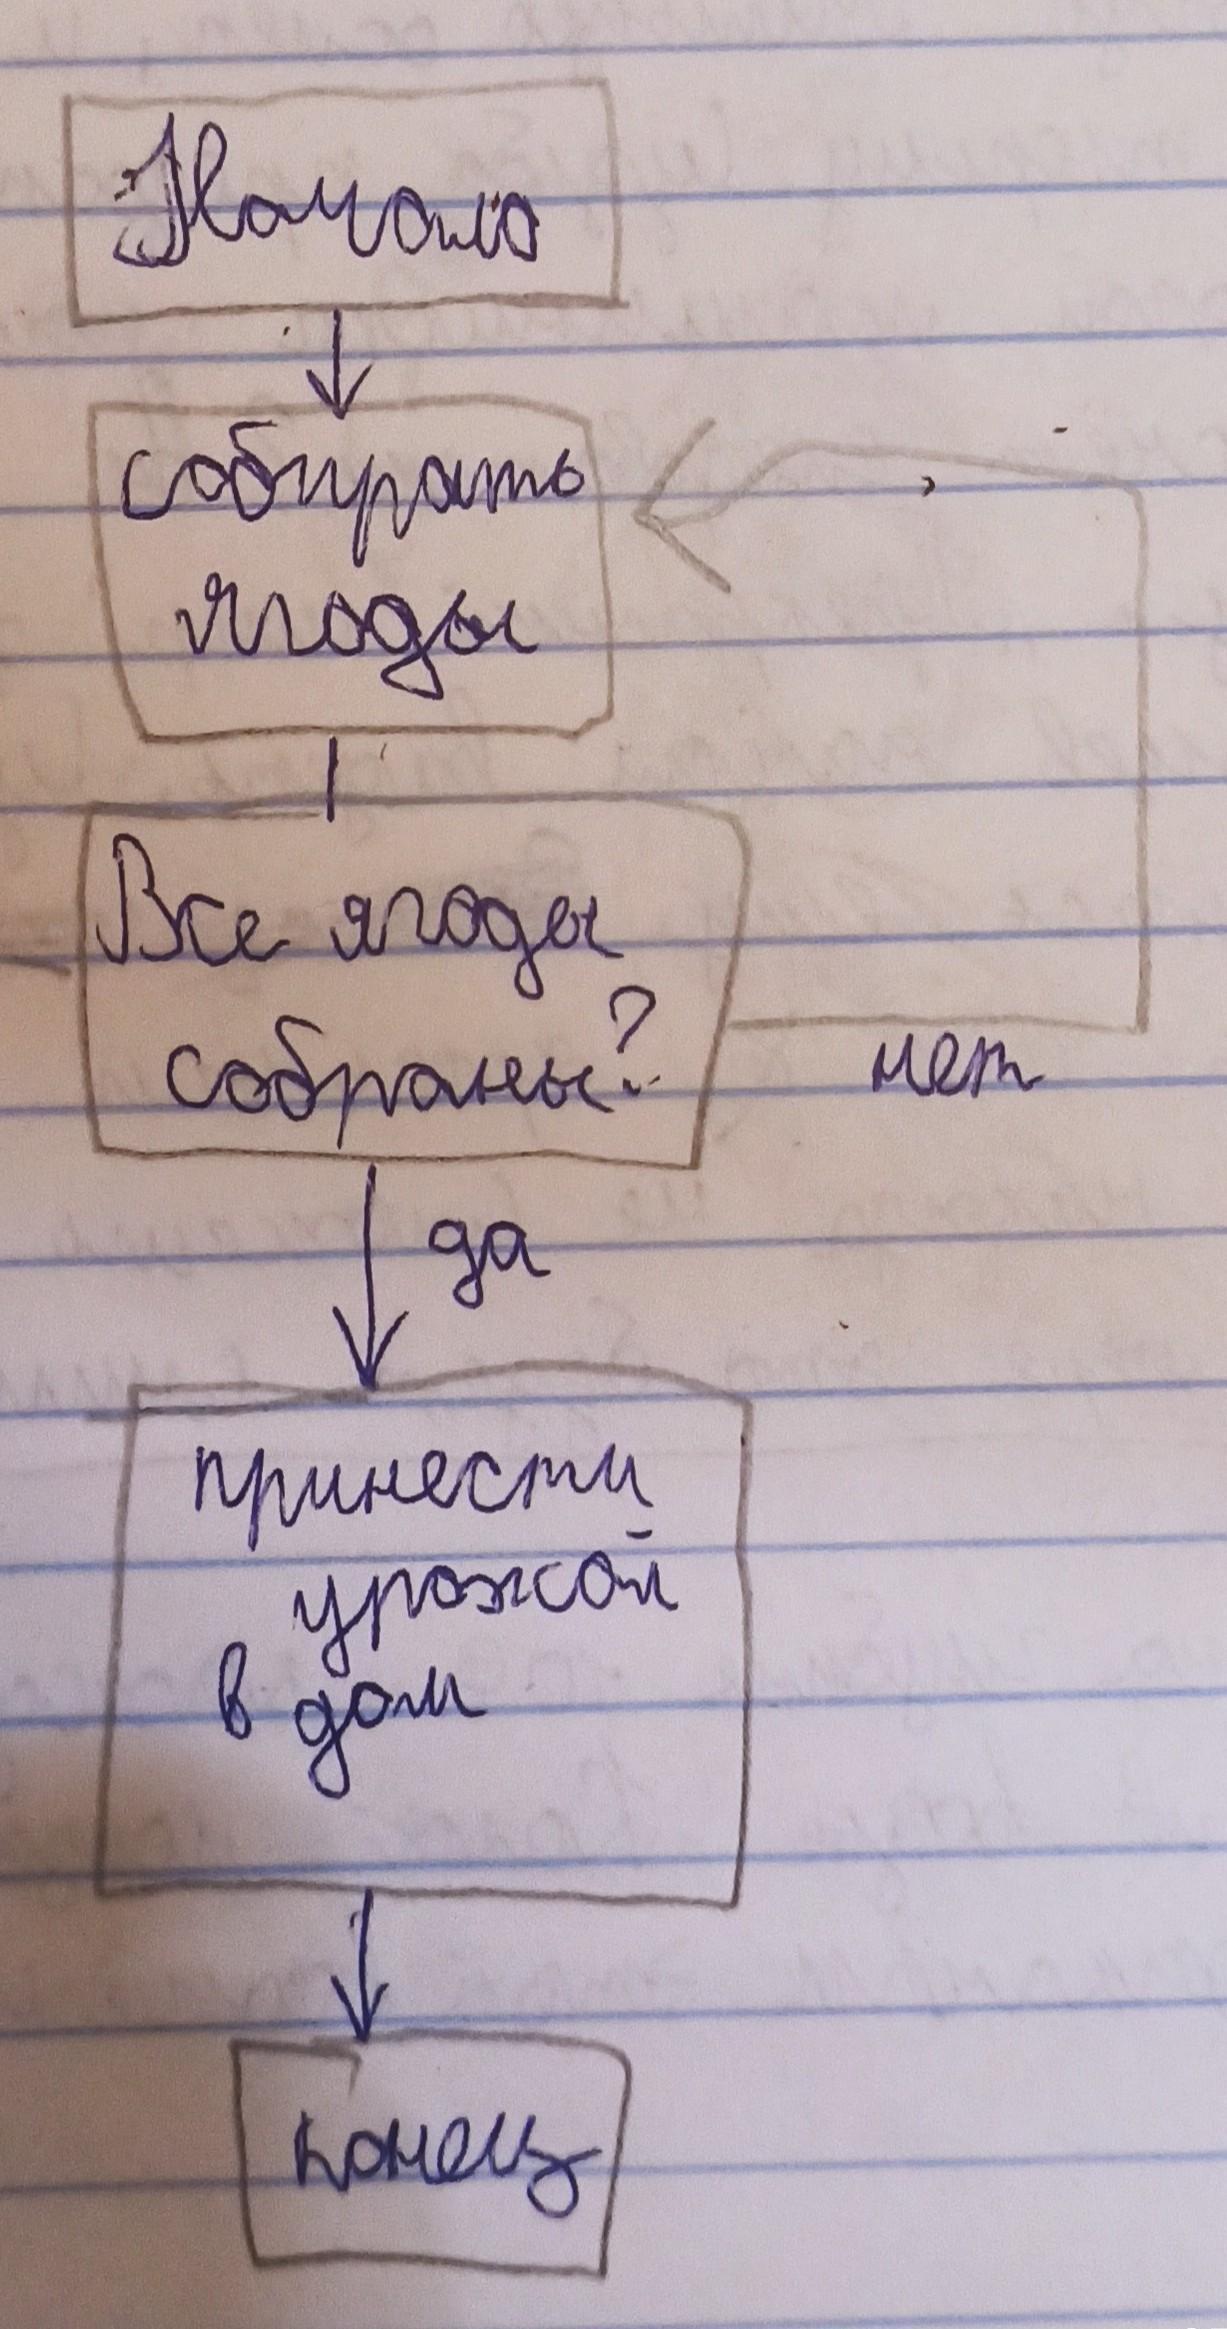 Начало
собирать
ягоды
Все ягоды
собраны?
нет
да
принести
урожай
в дом
конец